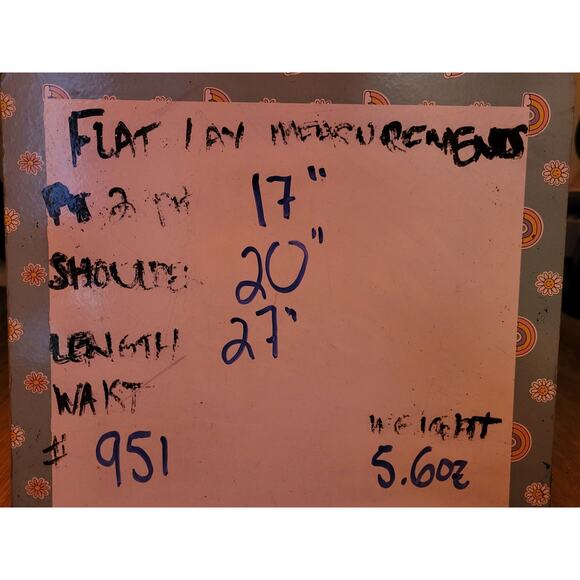 FLAT LAY MEASUREMENTS
PT 2 PT 17"
SHOULDER 20"
LENGTH 27"
WAIST
# 951
WEIGHT
5.6oz